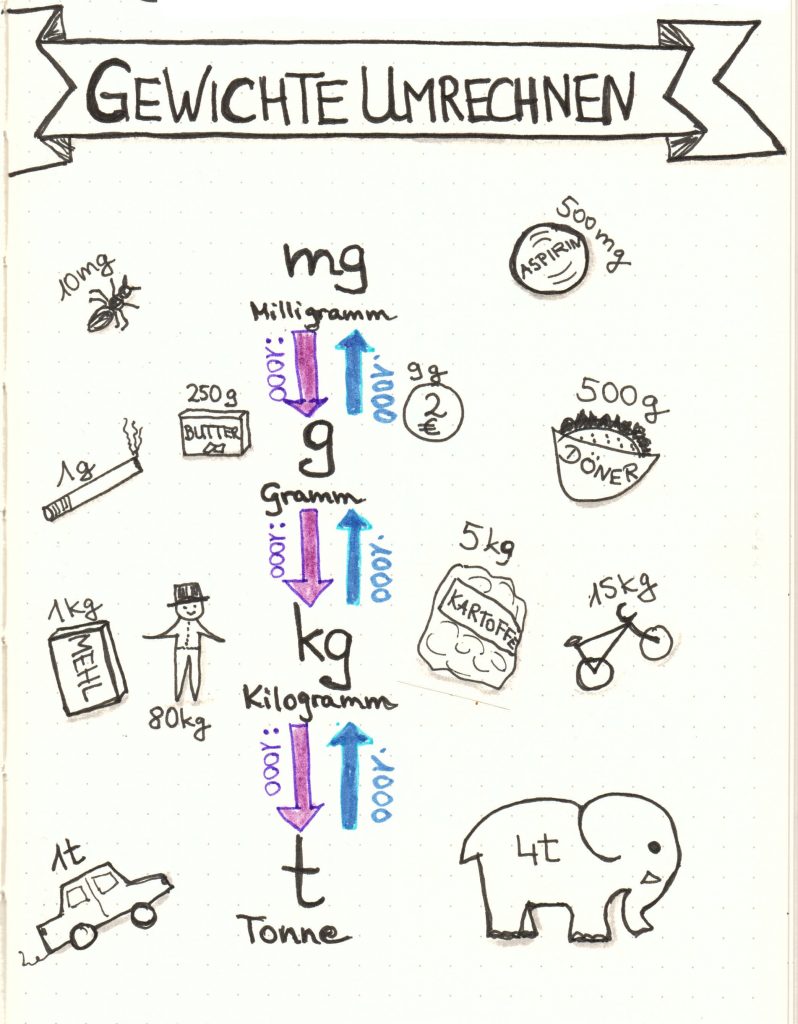 GEWICHTE UMRECHNEN
10mg
mg
Milligramm
500mg
ASPIRIN
:1000
·1000
250g
BUTTER
9g
2
€
g
Gramm
1g
500g
DÖNER
:1000
·1000
5kg
KARTOFFE
15kg
1kg
MEHL
80kg
kg
Kilogramm
:1000
·1000
1t
t
Tonne
4t